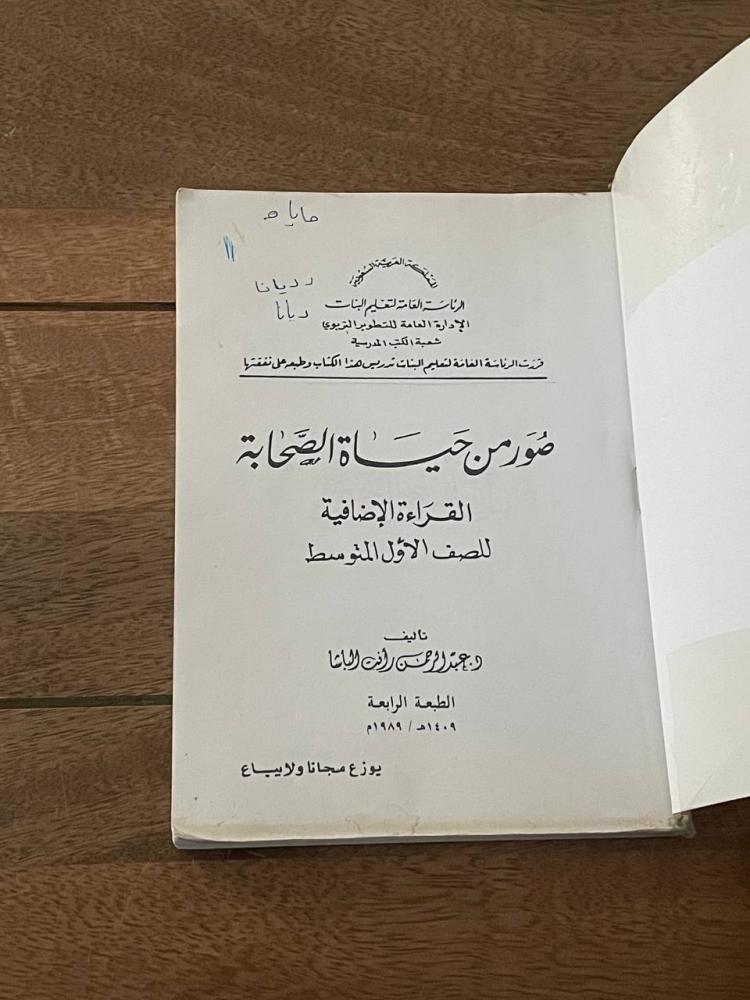 المملكة العربية السعودية
الرئاسة العامة لتعليم البنات
الإدارة العامة للتطوير التربوي
شعبة الكتب المدرسية
قررت الرئاسة العامة لتعليم البنات تدريس هذا الكتاب وطبعه على نفقتها
ديانا
صُوَر من حَيَاة الصَّحَابة
القراءة الإضافية
للصف الأول المتوسط
تأليف
د. عبد الرحمن رأفت الباشا
الطبعة الرابعة
١٤٠٩هـ / ١٩٨٩م
يوزع مجانا ولا يباع